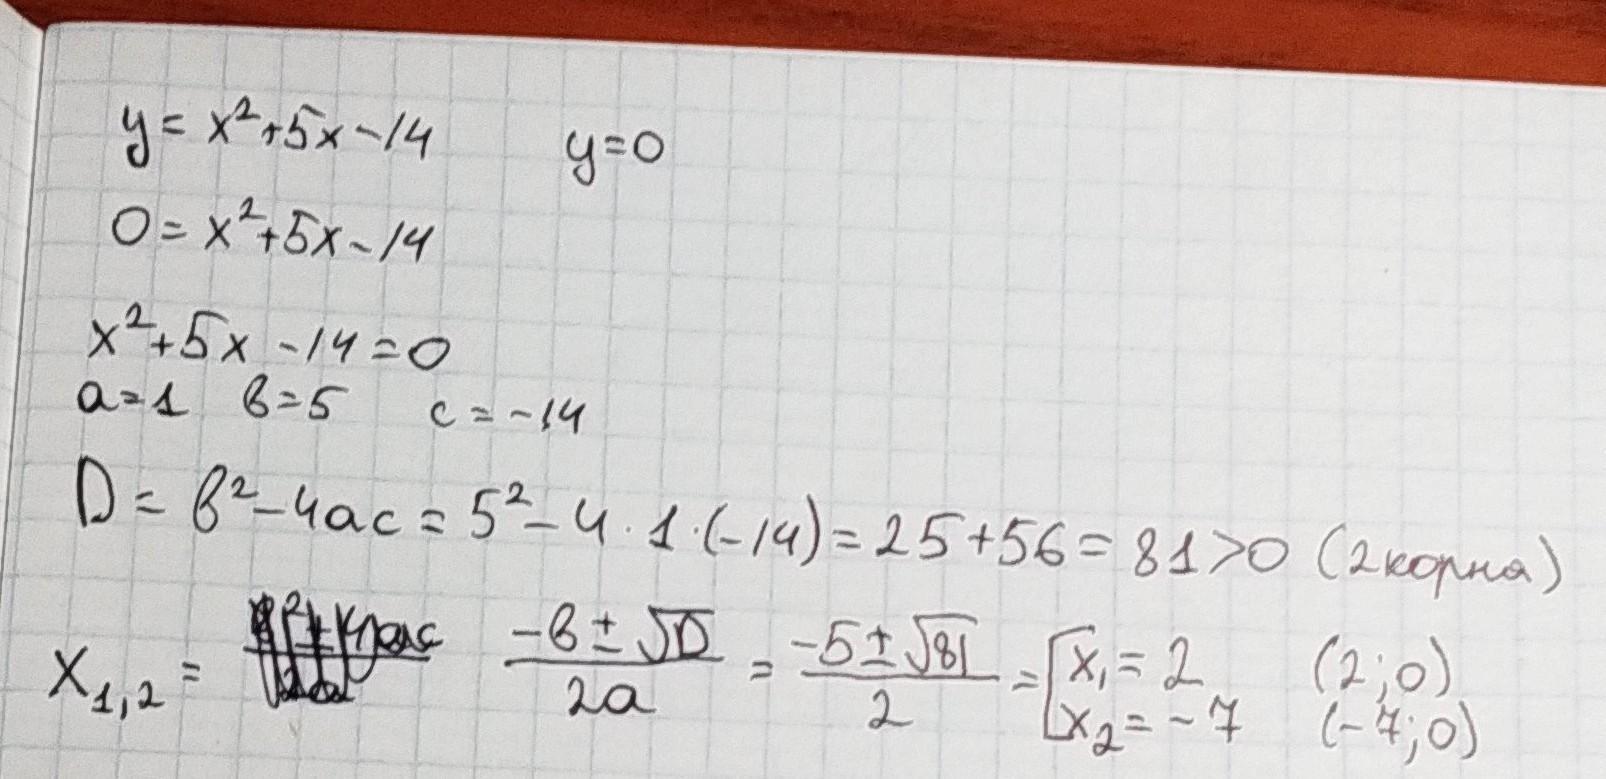 y = x²+5x-14 y=0
0 = x²+5x-14
x²+5x-14=0
a=1 b=5 c=-14
D = b²-4ac = 5²-4·1·(-14) = 25+56 = 81>0 (2 корня)
x₁,₂ = (-b±√D)/(2a) = (-5±√81)/2 = [x₁=2 (2;0)
x₂=-7 (-7;0)